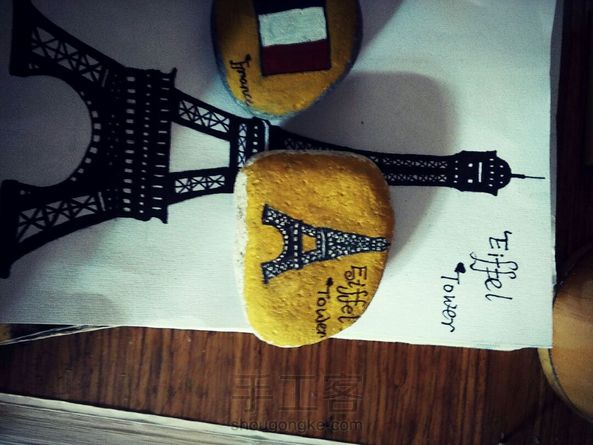 France
Eiffel
Tower
Eiffel
Tower
手工客
shougongke.com